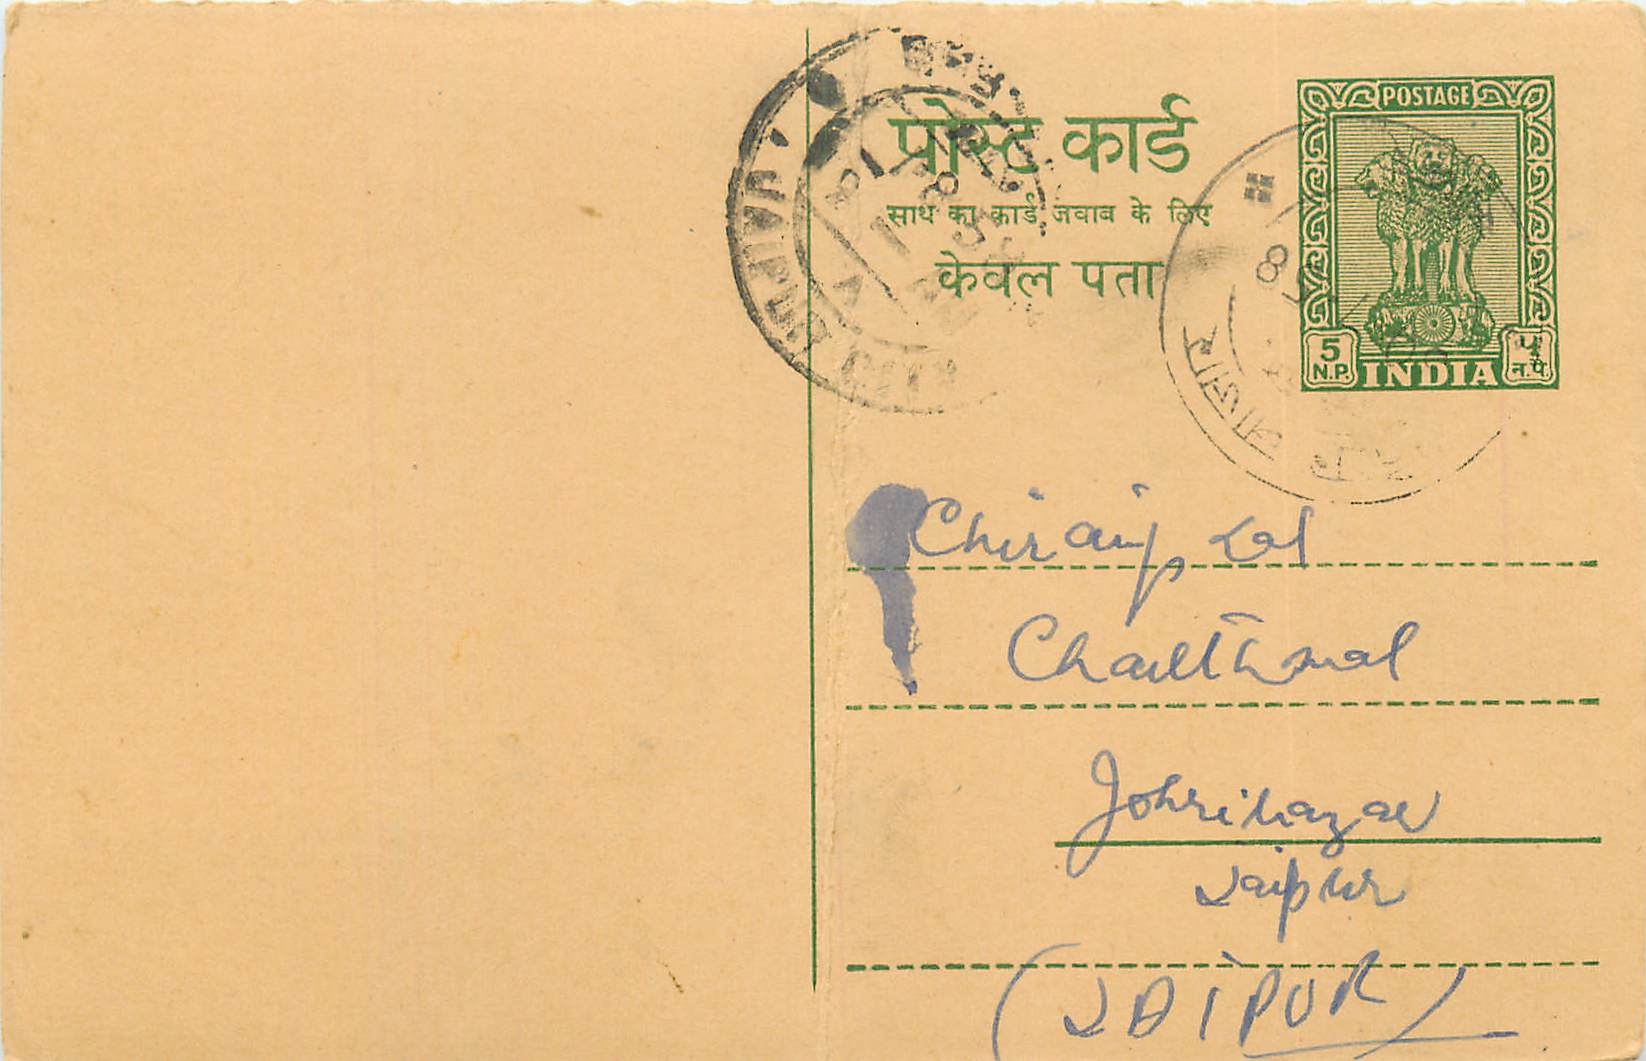 पोस्ट कार्ड
साथ का कार्ड जवाब के लिए
केवल पता
POSTAGE
5 N.P.
INDIA
५ न.पै.
JAIPUR CITY
Chiranji Lal
Chauthmal
Johri bazar
Jaipur
(JAIPUR)